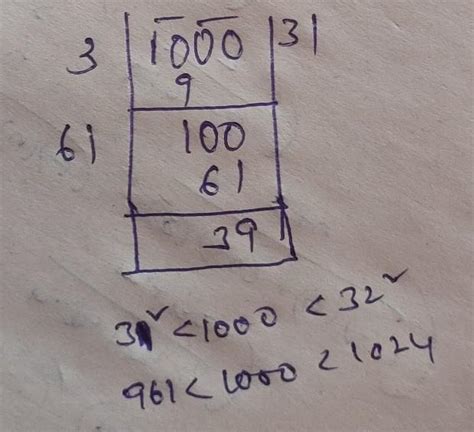 3 1000 31
9
61 100
61
39
31² < 1000 < 32²
961 < 1000 < 1024